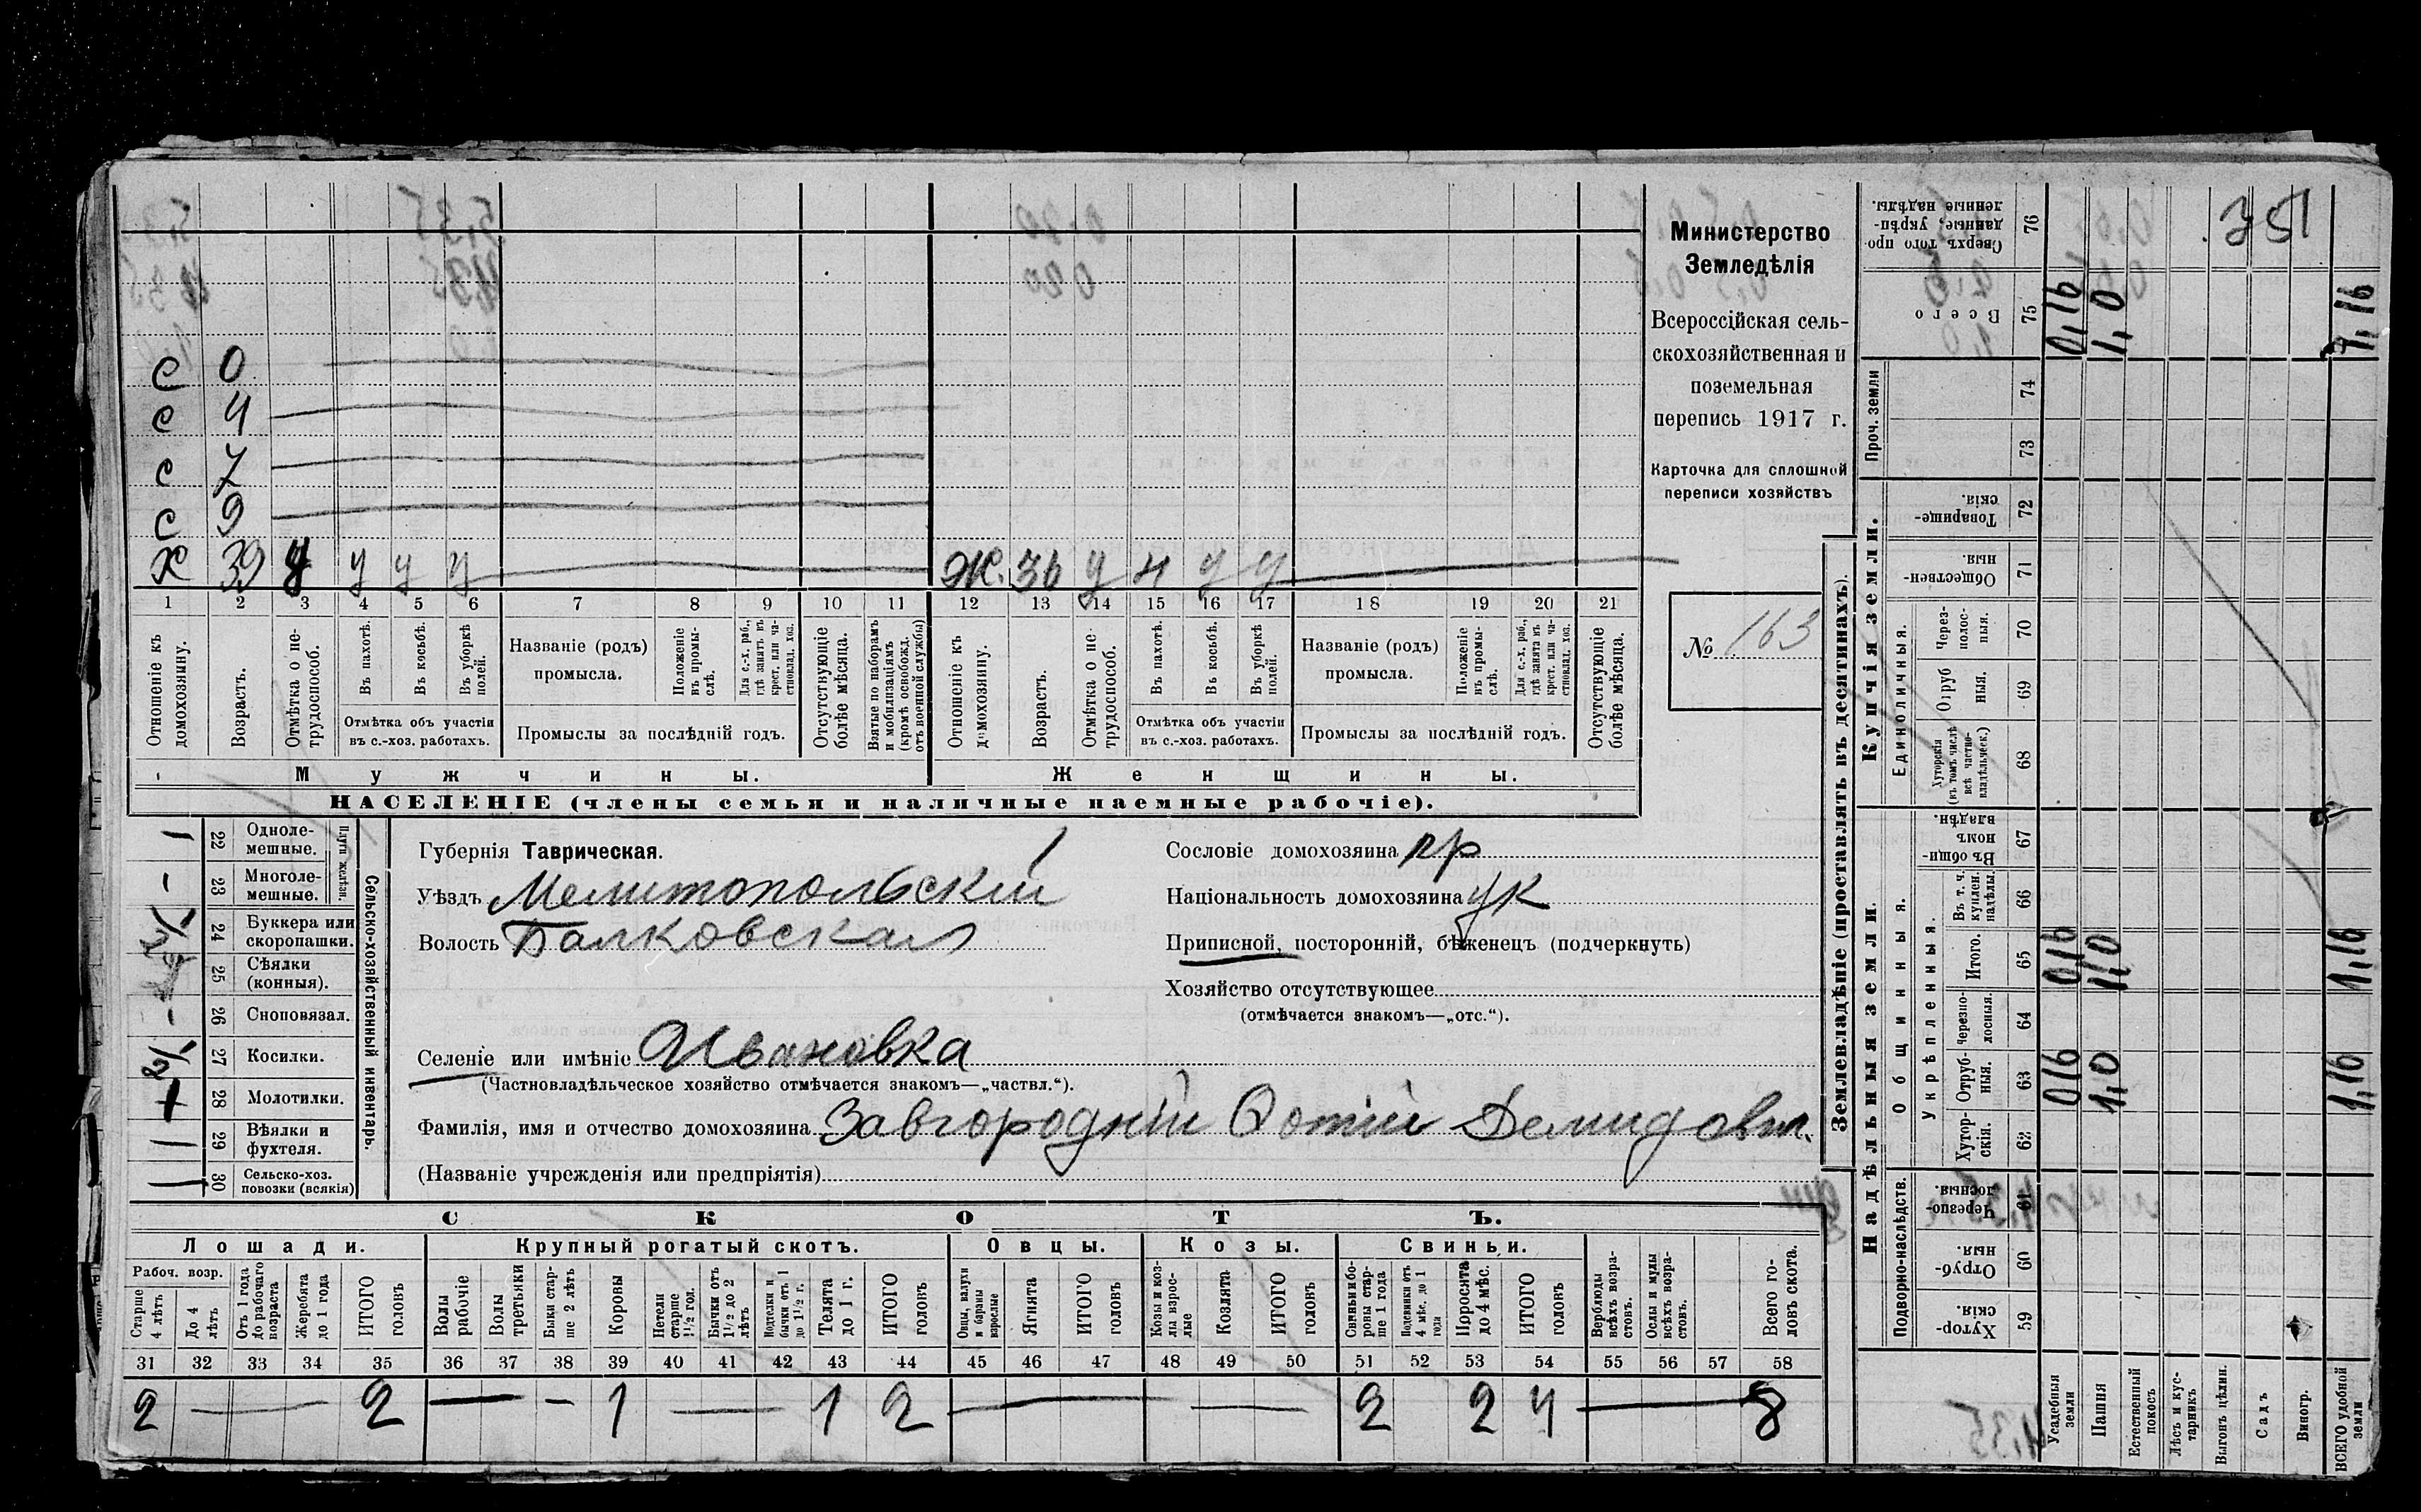 751
Министерство
Земледѣлія
Всероссійская сель-
скохозяйственная и
поземельная
перепись 1917 г.
Карточка для сплошной
переписи хозяйствъ
№ 163
с 0
с 4
с 7
с 9
х 39 у у у у Ж. 36 у н у у
1 2 3 4 5 6 7 8 9 10 11 12 13 14 15 16 17 18 19 20 21
Отношеніе къ домохозяину.
Возрастъ.
Отмѣтка о не-трудоспособ.
Въ пахотѣ.
Въ косьбѣ.
Въ уборкѣ полей.
Отмѣтка объ участіи
въ с.-хоз. работахъ.
Названіе (родъ)
промысла.
Положеніе въ промы-слѣ.
Для с.-х. раб., гдѣ занятъ въ крест. или ча-стновлад. хоз.
Промыслы за послѣдній годъ.
Отсутствующіе болѣе мѣсяца.
Взятые по наборамъ и мобилизаціямъ (кромѣ освобожд. отъ военной службы)
Отношеніе къ домохозяину.
Возрастъ.
Отмѣтка о не-трудоспособ.
Въ пахотѣ.
Въ косьбѣ.
Въ уборкѣ полей.
Отмѣтка объ участіи
въ с.-хоз. работахъ.
Названіе (родъ)
промысла.
Положеніе въ промы-слѣ.
Для с.-х. раб., гдѣ занята въ крест. или ча-стновлад. хоз.
Промыслы за послѣдній годъ.
Отсутствующіе болѣе мѣсяца.
Мужчины. Женщины.
НАСЕЛЕНІЕ (члены семьи и наличные наемные рабочіе).
Сельско-хозяйственный инвентарь.
Плуги желѣзн.
22 Одноле-мешные. 1
23 Многоле-мешные. -
24 Буккера или скоропашки.
25 Сѣялки (конныя).
26 Сноповязал. -
27 Косилки.
28 Молотилки.
29 Вѣялки и фухтеля. 1
30 Сельско-хоз. повозки (всякія) 1
Губернія Таврическая.
Уѣздъ Мелитопольскій
Волость Балковская
Селеніе или имѣніе Ивановка
(Частновладѣльческое хозяйство отмѣчается знакомъ—„частвл.“).
Фамилія, имя и отчество домохозяина Завгородній Фотій Демидович.
(Названіе учрежденія или предпріятія)
Сословіе домохозяина кр
Національность домохозяина ук
Приписной, посторонній, бѣженецъ (подчеркнуть)
Хозяйство отсутствующее
(отмѣчается знакомъ—„отс.“).
СКОТЪ.
Лошади. Крупный рогатый скотъ. Овцы. Козы. Свиньи.
Рабоч. возр.
Старше 4 лѣтъ
До 4 лѣтъ
Отъ 1 года до рабочаго возраста
Жеребята до 1 года
ИТОГО головъ
Волы рабочіе
Волы третьяки
Быки стар-ше 2 лѣтъ
Коровы
Нетели старше 1½ год.
Бычки отъ 1½ до 2 лѣтъ
Подтелки и бычки отъ 1 до 1½ г.
Телята до 1 г.
ИТОГО головъ
Овцы, валухи и бараны взрослые
Ягнята
ИТОГО головъ
Козы и коз-лы взрос-лые
Козлята
ИТОГО головъ
Свиньи и бо-ровы стар-ше 1 года
Подсвинки отъ 4 мѣс. до 1 года
Поросята до 4 мѣс.
ИТОГО головъ
Верблюды всѣхъ возра-стовъ.
Ослы и мулы всѣхъ возра-стовъ.
Всего го-ловъ скота.
31 32 33 34 35 36 37 38 39 40 41 42 43 44 45 46 47 48 49 50 51 52 53 54 55 56 57 58
2 — 2 — - 1 — 1 2 — — 2 2 4 — 8
Землевладѣніе (проставлять въ десятинахъ).
Надѣльныя земли.
Купчія земли.
Проч. земли
Подворно-наслѣдств.
Общинныя.
Укрѣпленныя.
Единоличныя.
59 Хутор-скія.
60 Отруб-ныя
61 Черезпо-лосныя.
62 Хутор-скія.
63 Отруб-ныя. 0,16 1,0 1,16
64 Черезпо-лосныя.
65 Итого. 0,16 1,0 1,16
66 Въ т. ч. куплен. надѣлы.
67 Въ общин-номъ владѣн.
68 Хуторскія (въ томъ числѣ всѣ частно-владѣльческ.)
69 Отруб-ныя.
70 Через-полос-ныя.
71 Обществен-ныя.
72 Товарище-скія.
73
74
75 Всего 0,16 1,0 1,16
76 Сверхъ того про-данные, укрѣп-ленные надѣлы.
Усадебныя земли
Пашня
Естественный покосъ
Лѣсъ и кус-тарникъ
Выгонъ цѣлин.
Садъ
Виногр.
ВСЕГО удобной земли